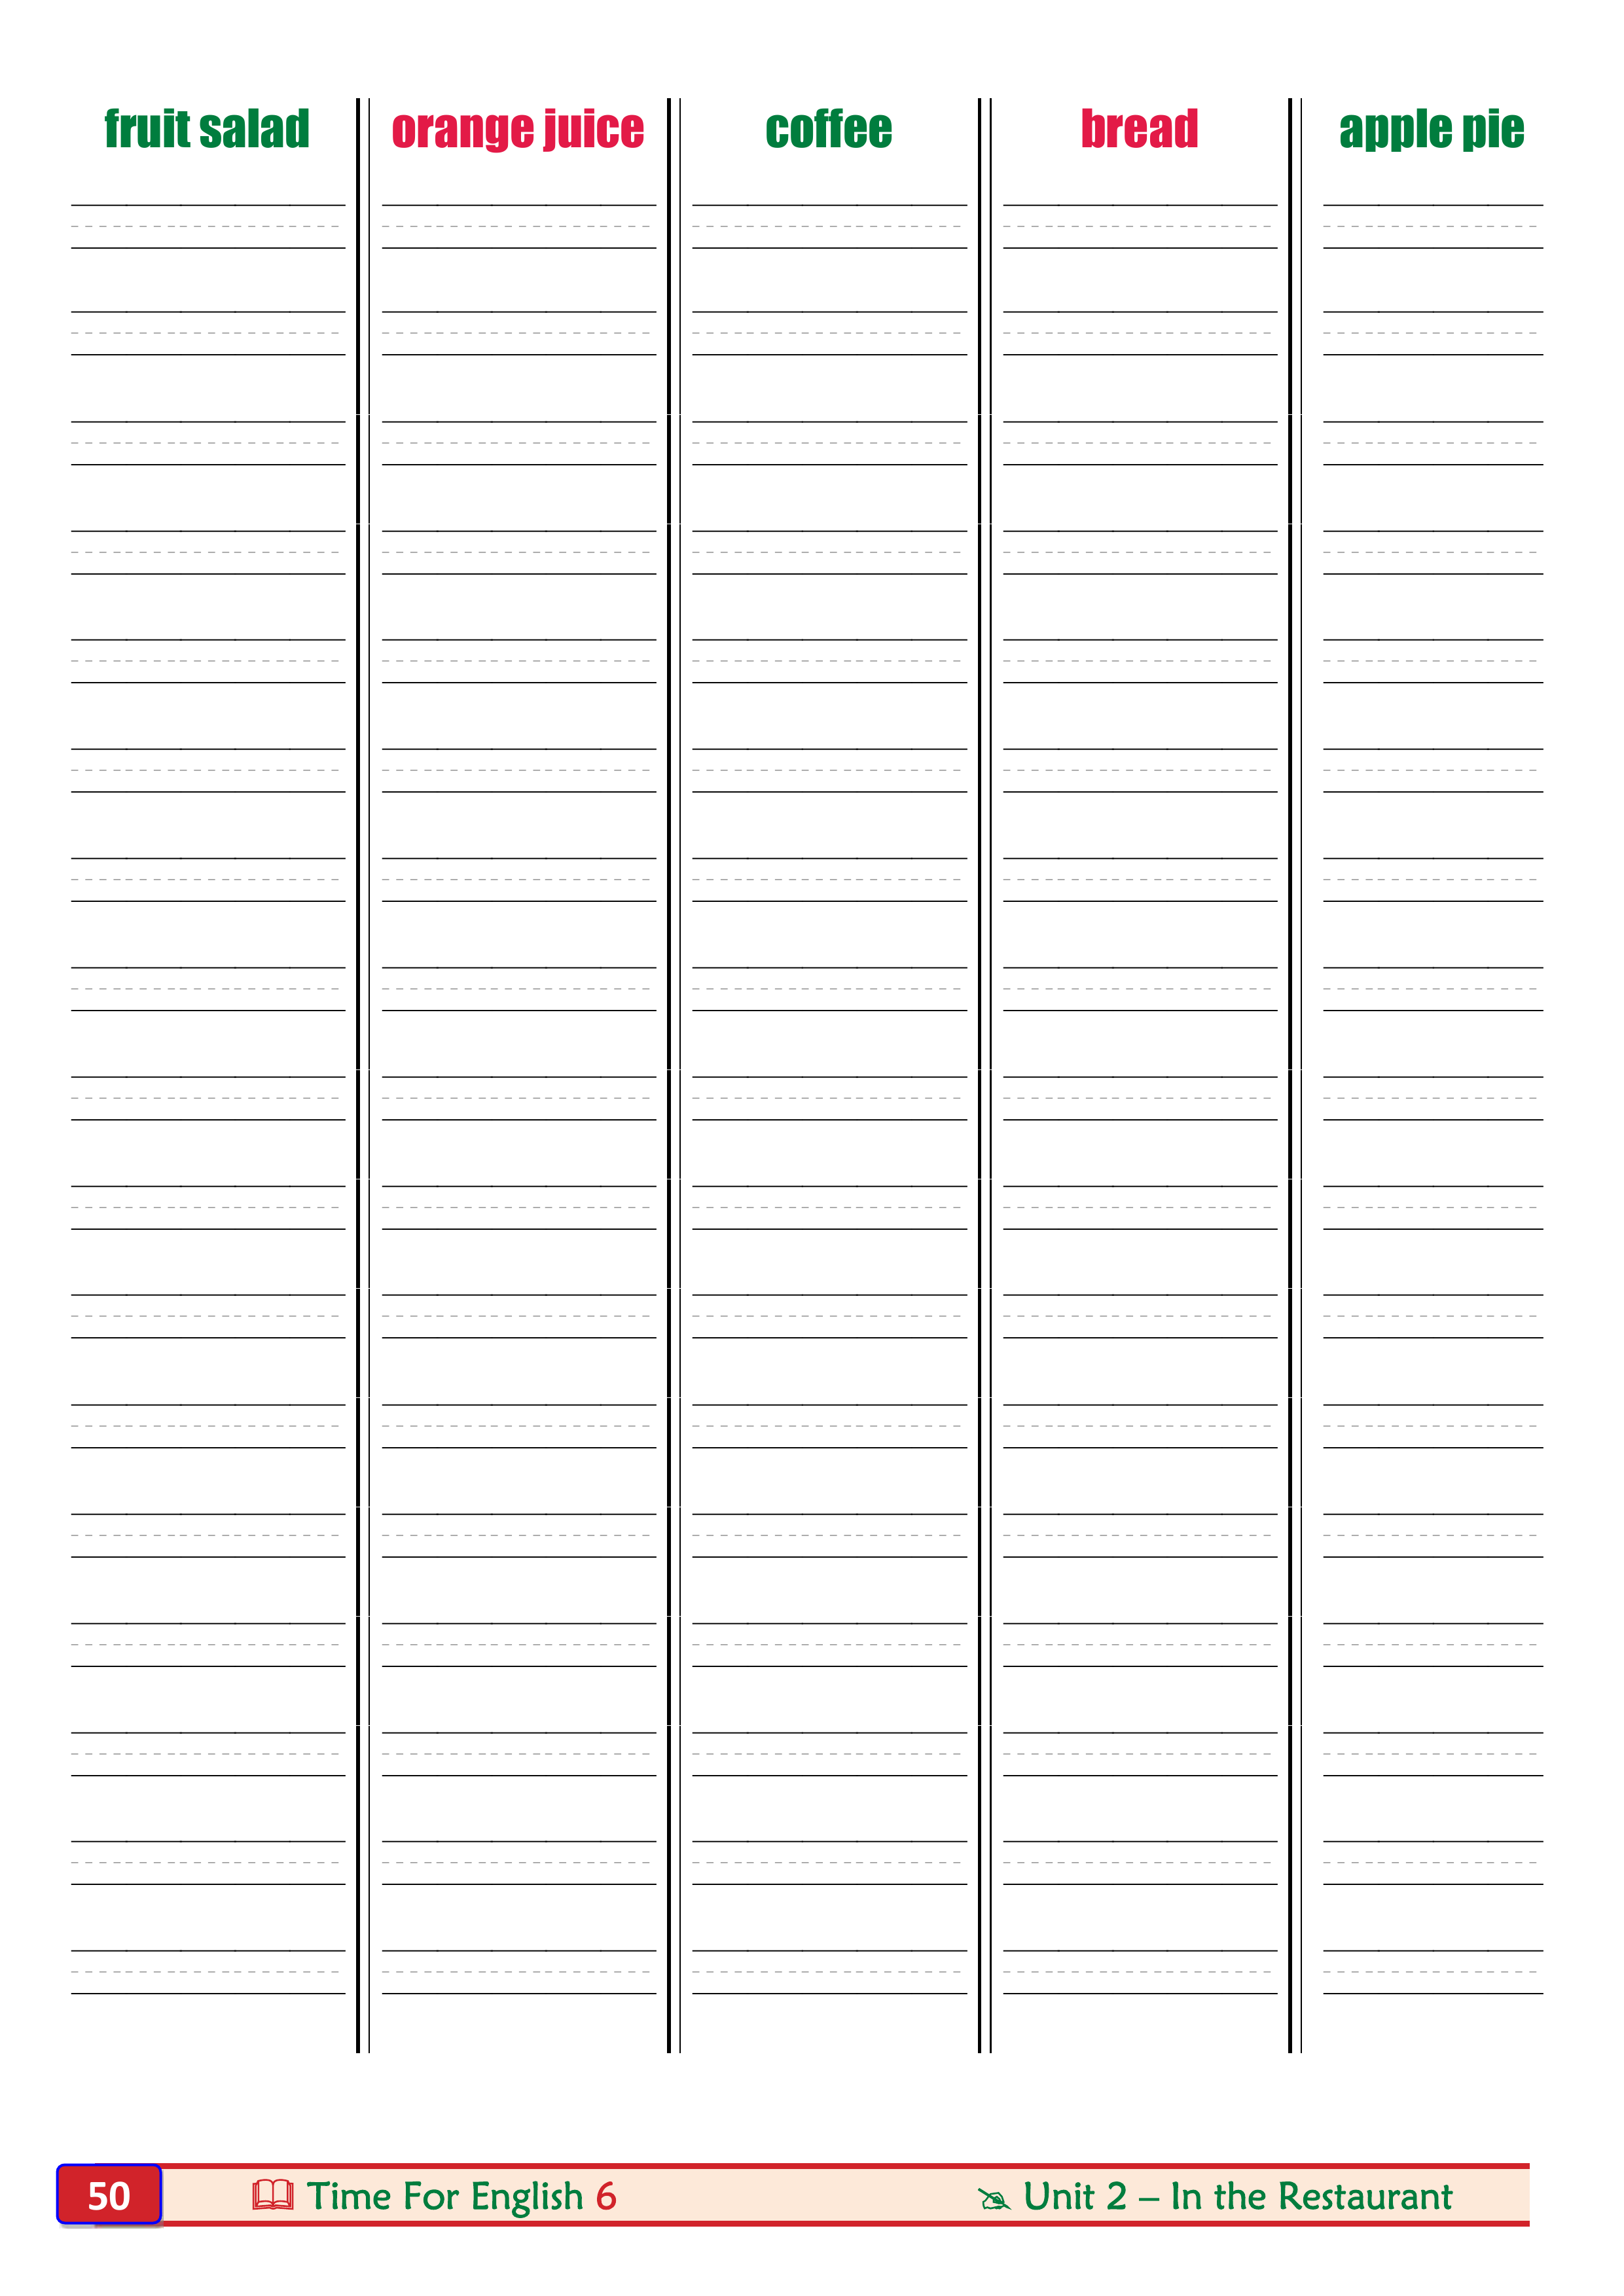 fruit salad orange juice coffee bread apple pie
50 Time For English 6 Unit 2 – In the Restaurant